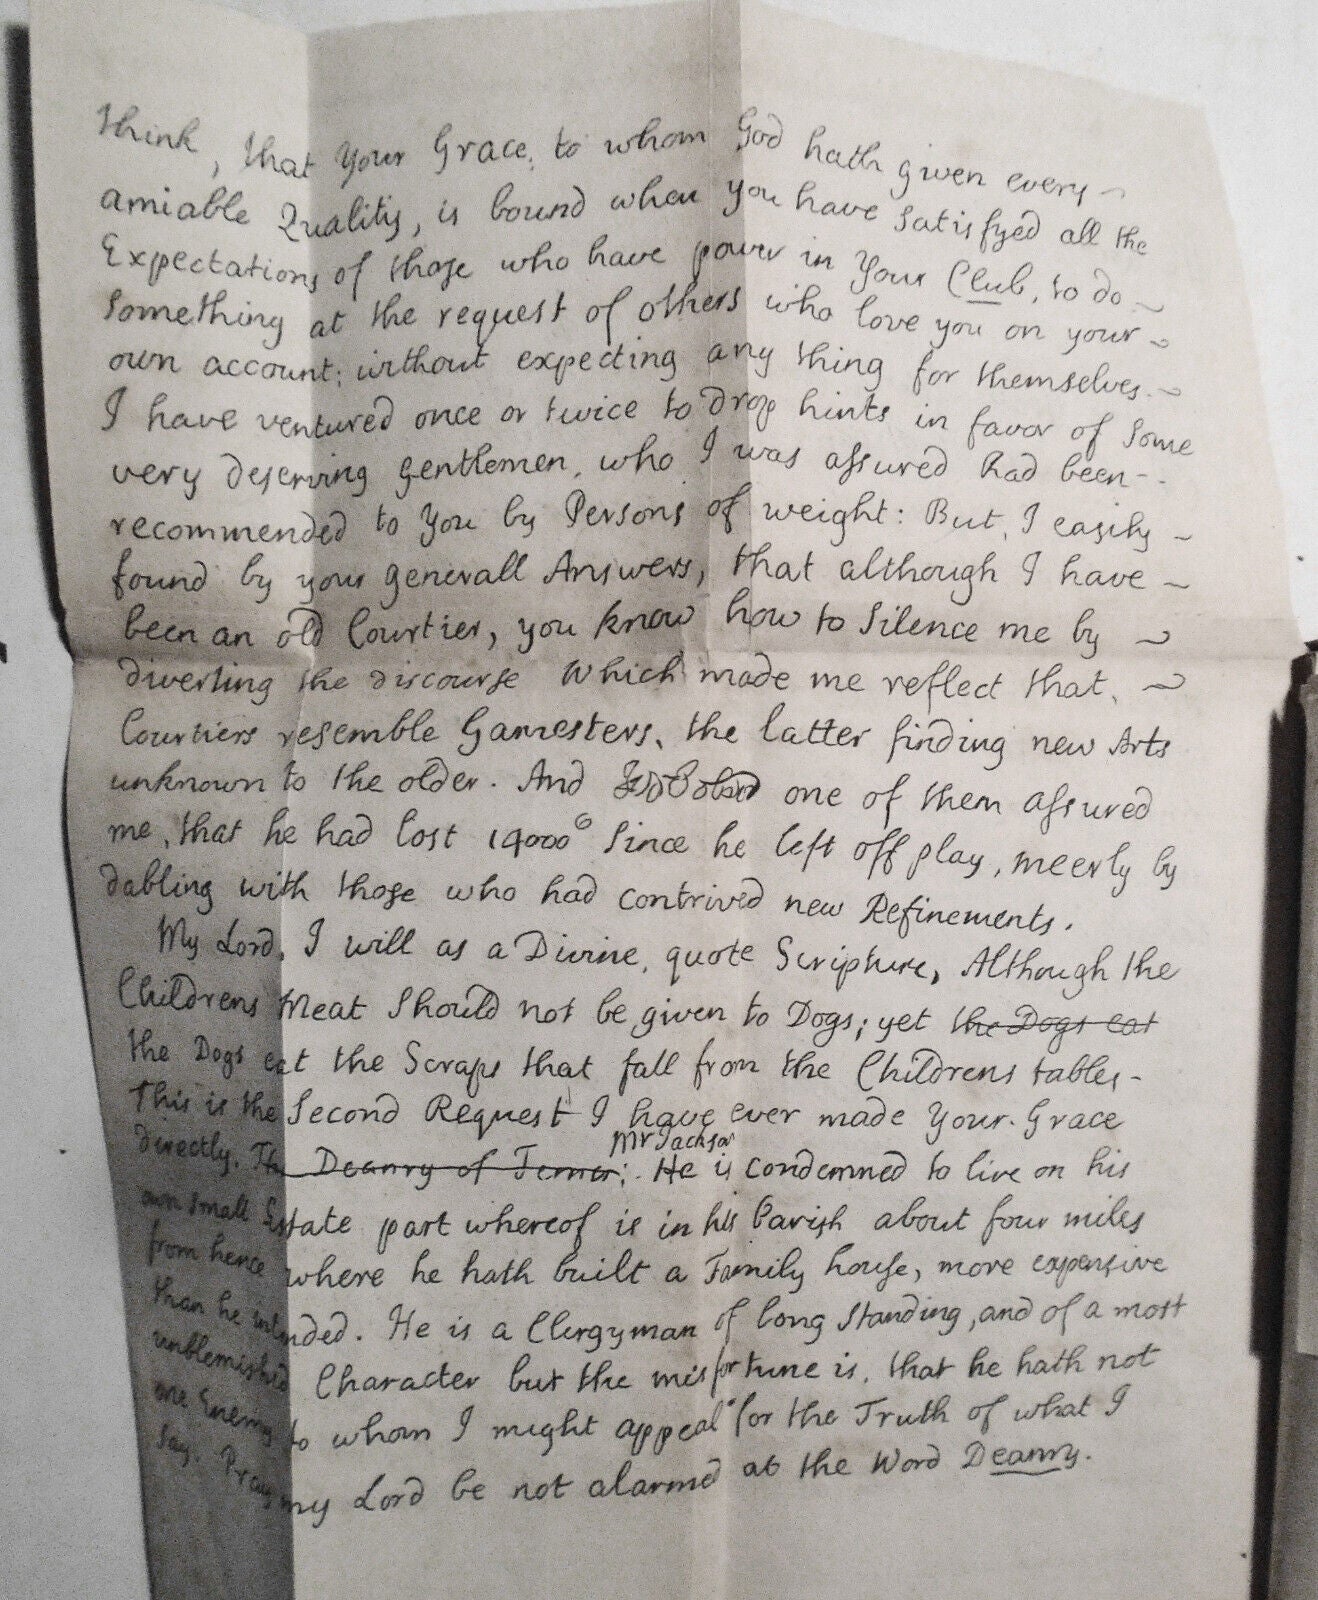 think, that Your Grace, to whom God hath given every
amiable Quality, is bound when you have satisfyed all the
Expectations of those who have power in Your Club, to do
something at the request of others who love you on your
own account; without expecting any thing for themselves.
I have ventured once or twice to drop hints in favor of some
very deserving gentlemen, who I was assured had been
recommended to You by Persons of weight: But, I easily
found by your generall Answers, that although I have
been an old Courtier, you know how to silence me by
diverting the discourse which made me reflect that,
Courtiers resemble Gamesters, the latter finding new Arts
unknown to the older. And one of them assured
me, that he had lost 14000 since he left off play, meerly by
dabling with those who had contrived new Refinements.
My Lord, I will as a Divine, quote Scripture, Although the
Childrens Meat should not be given to Dogs; yet the Dogs eat
the Dogs eat the Scraps that fall from the Childrens tables-
This is the Second Request I have ever made Your Grace
Mr Jackson
directly. The Deanry of : He is condemned to live on his
own small Estate part whereof is in his Parish about four miles
from hence where he hath built a Family house, more expensive
than he intended. He is a Clergyman of long standing, and of a most
unblemished Character but the misfortune is, that he hath not
one Enemy to whom I might appeal for the Truth of what I
say. Pray my Lord be not alarmed at the Word Deanry.